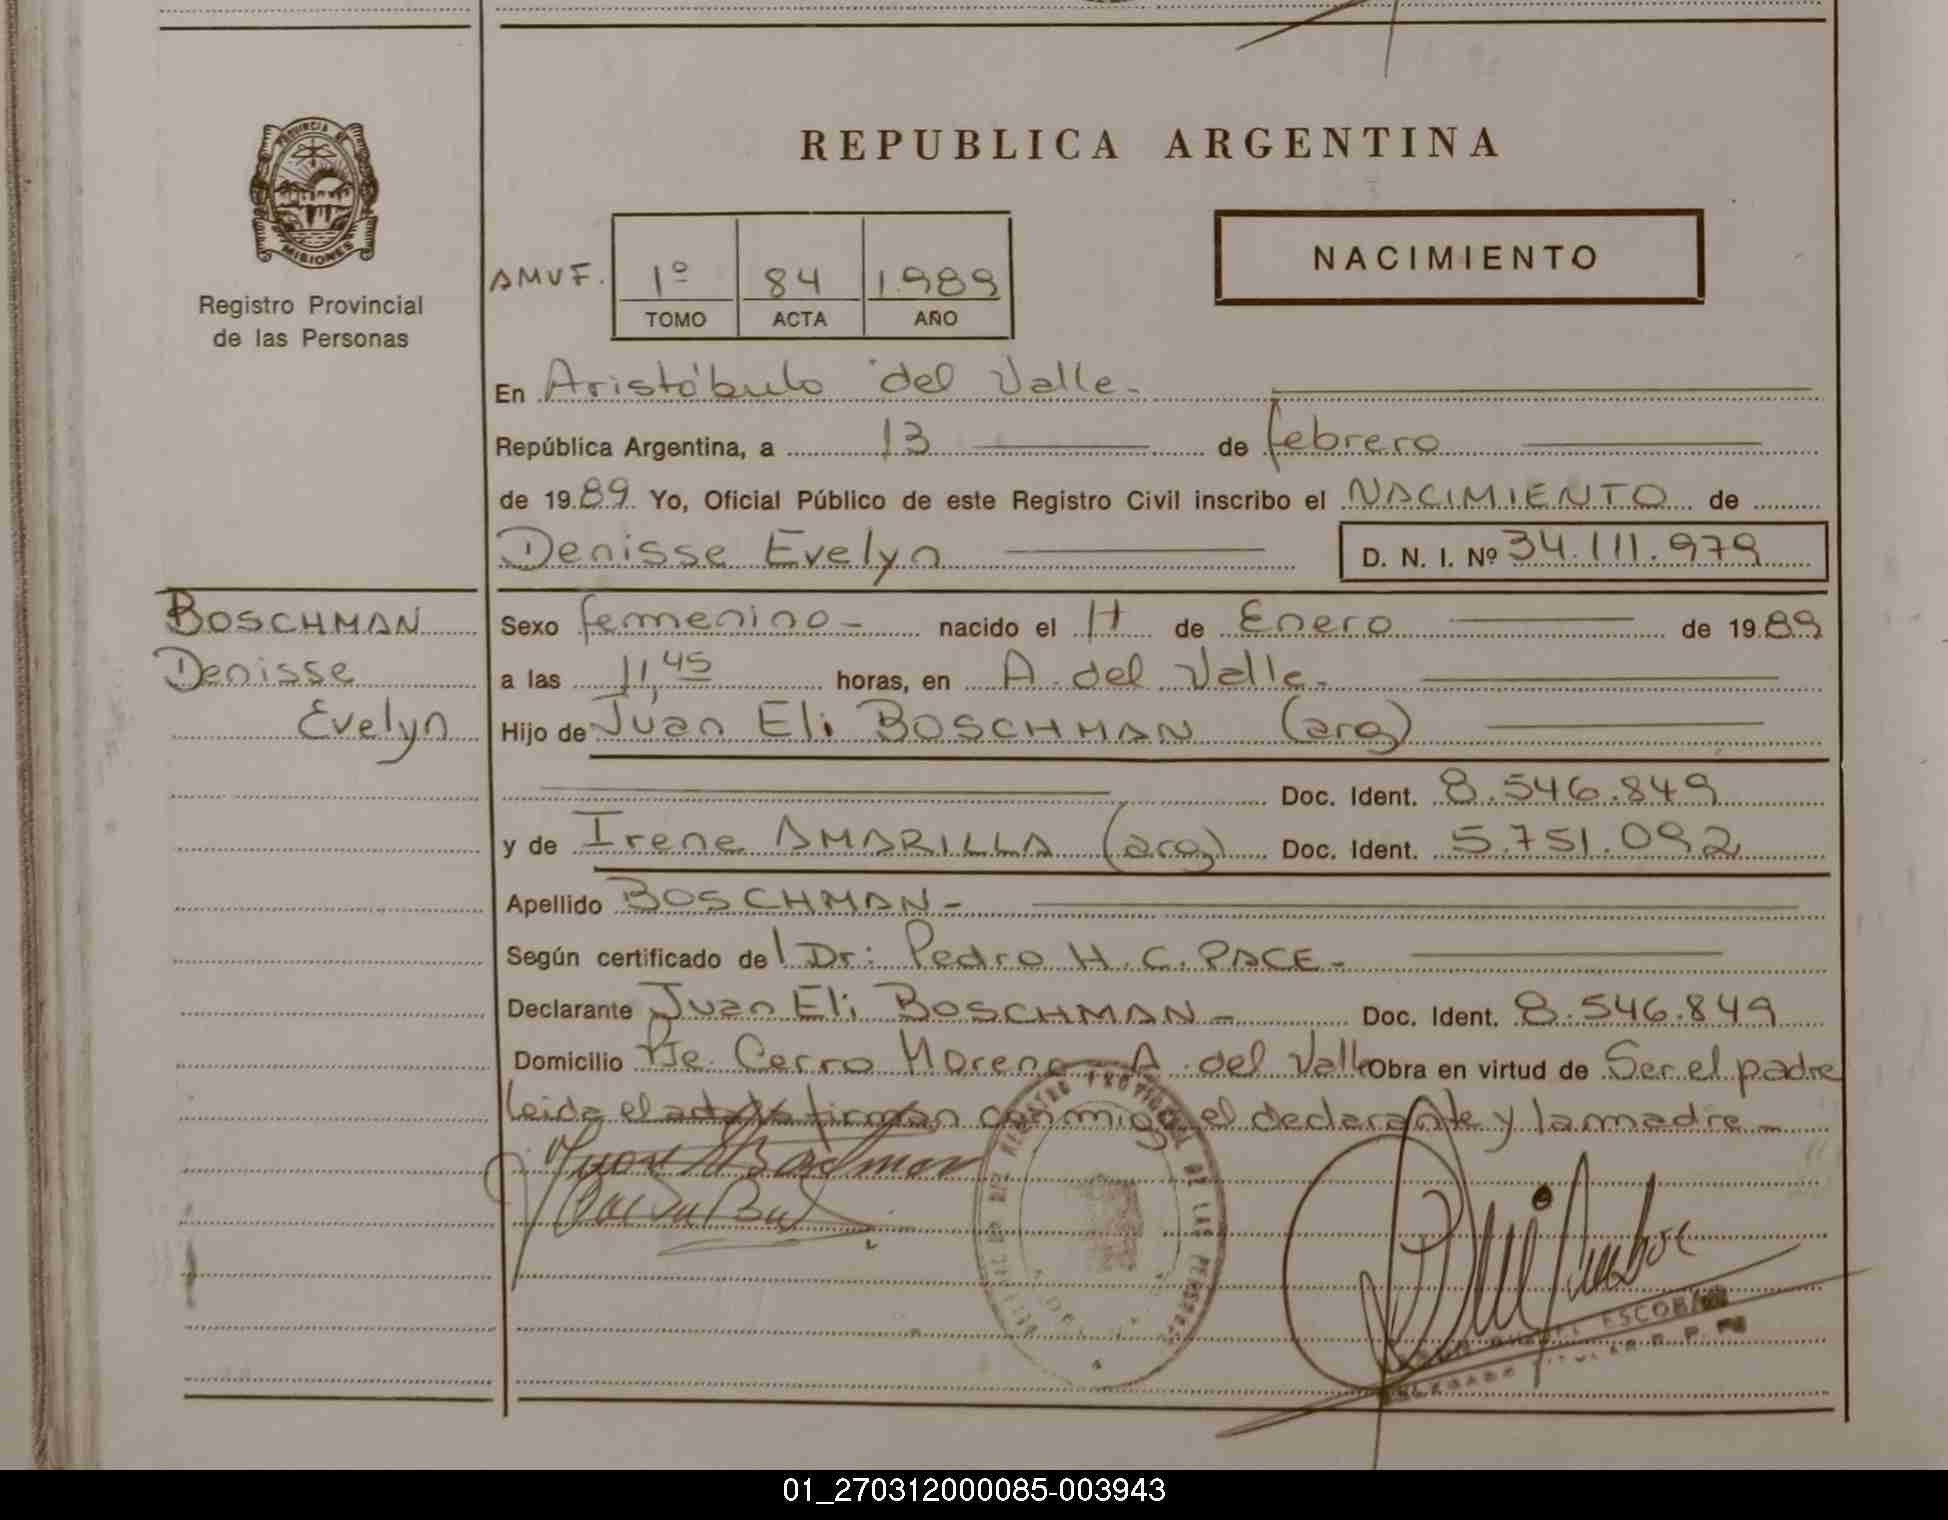 PROVINCIA DE
MISIONES
Registro Provincial
de las Personas
REPUBLICA ARGENTINA
NACIMIENTO
AMVF. 1º 84 1.989
TOMO ACTA AÑO
En Aristóbulo del Valle.
República Argentina, a 13 de febrero
de 1989 Yo, Oficial Público de este Registro Civil inscribo el NACIMIENTO de
Denisse Evelyn D. N. I. Nº 34.111.979
BOSCHMAN
Denisse
Evelyn
Sexo femenino - nacido el de Enero de 1989
a las 11,45 horas, en A. del Valle.
Hijo de Juan Eli BOSCHMAN (arg)
Doc. Ident. 8.546.849
y de Irene AMARILLA (arg) Doc. Ident. 5.751.092
Apellido BOSCHMAN -
Según certificado del Dr: Pedro H. C. PACE -
Declarante Juan Eli BOSCHMAN - Doc. Ident. 8.546.849
Domicilio Pje. Cerro Moreno A. del Valle Obra en virtud de Ser el padre
Leida el acta la firman conmigo el declarante y la madre -
REGISTRO PROVINCIAL DE LAS PERSONAS
ESCOBAR
DELEGADO TITULAR R. P.
01_270312000085-003943